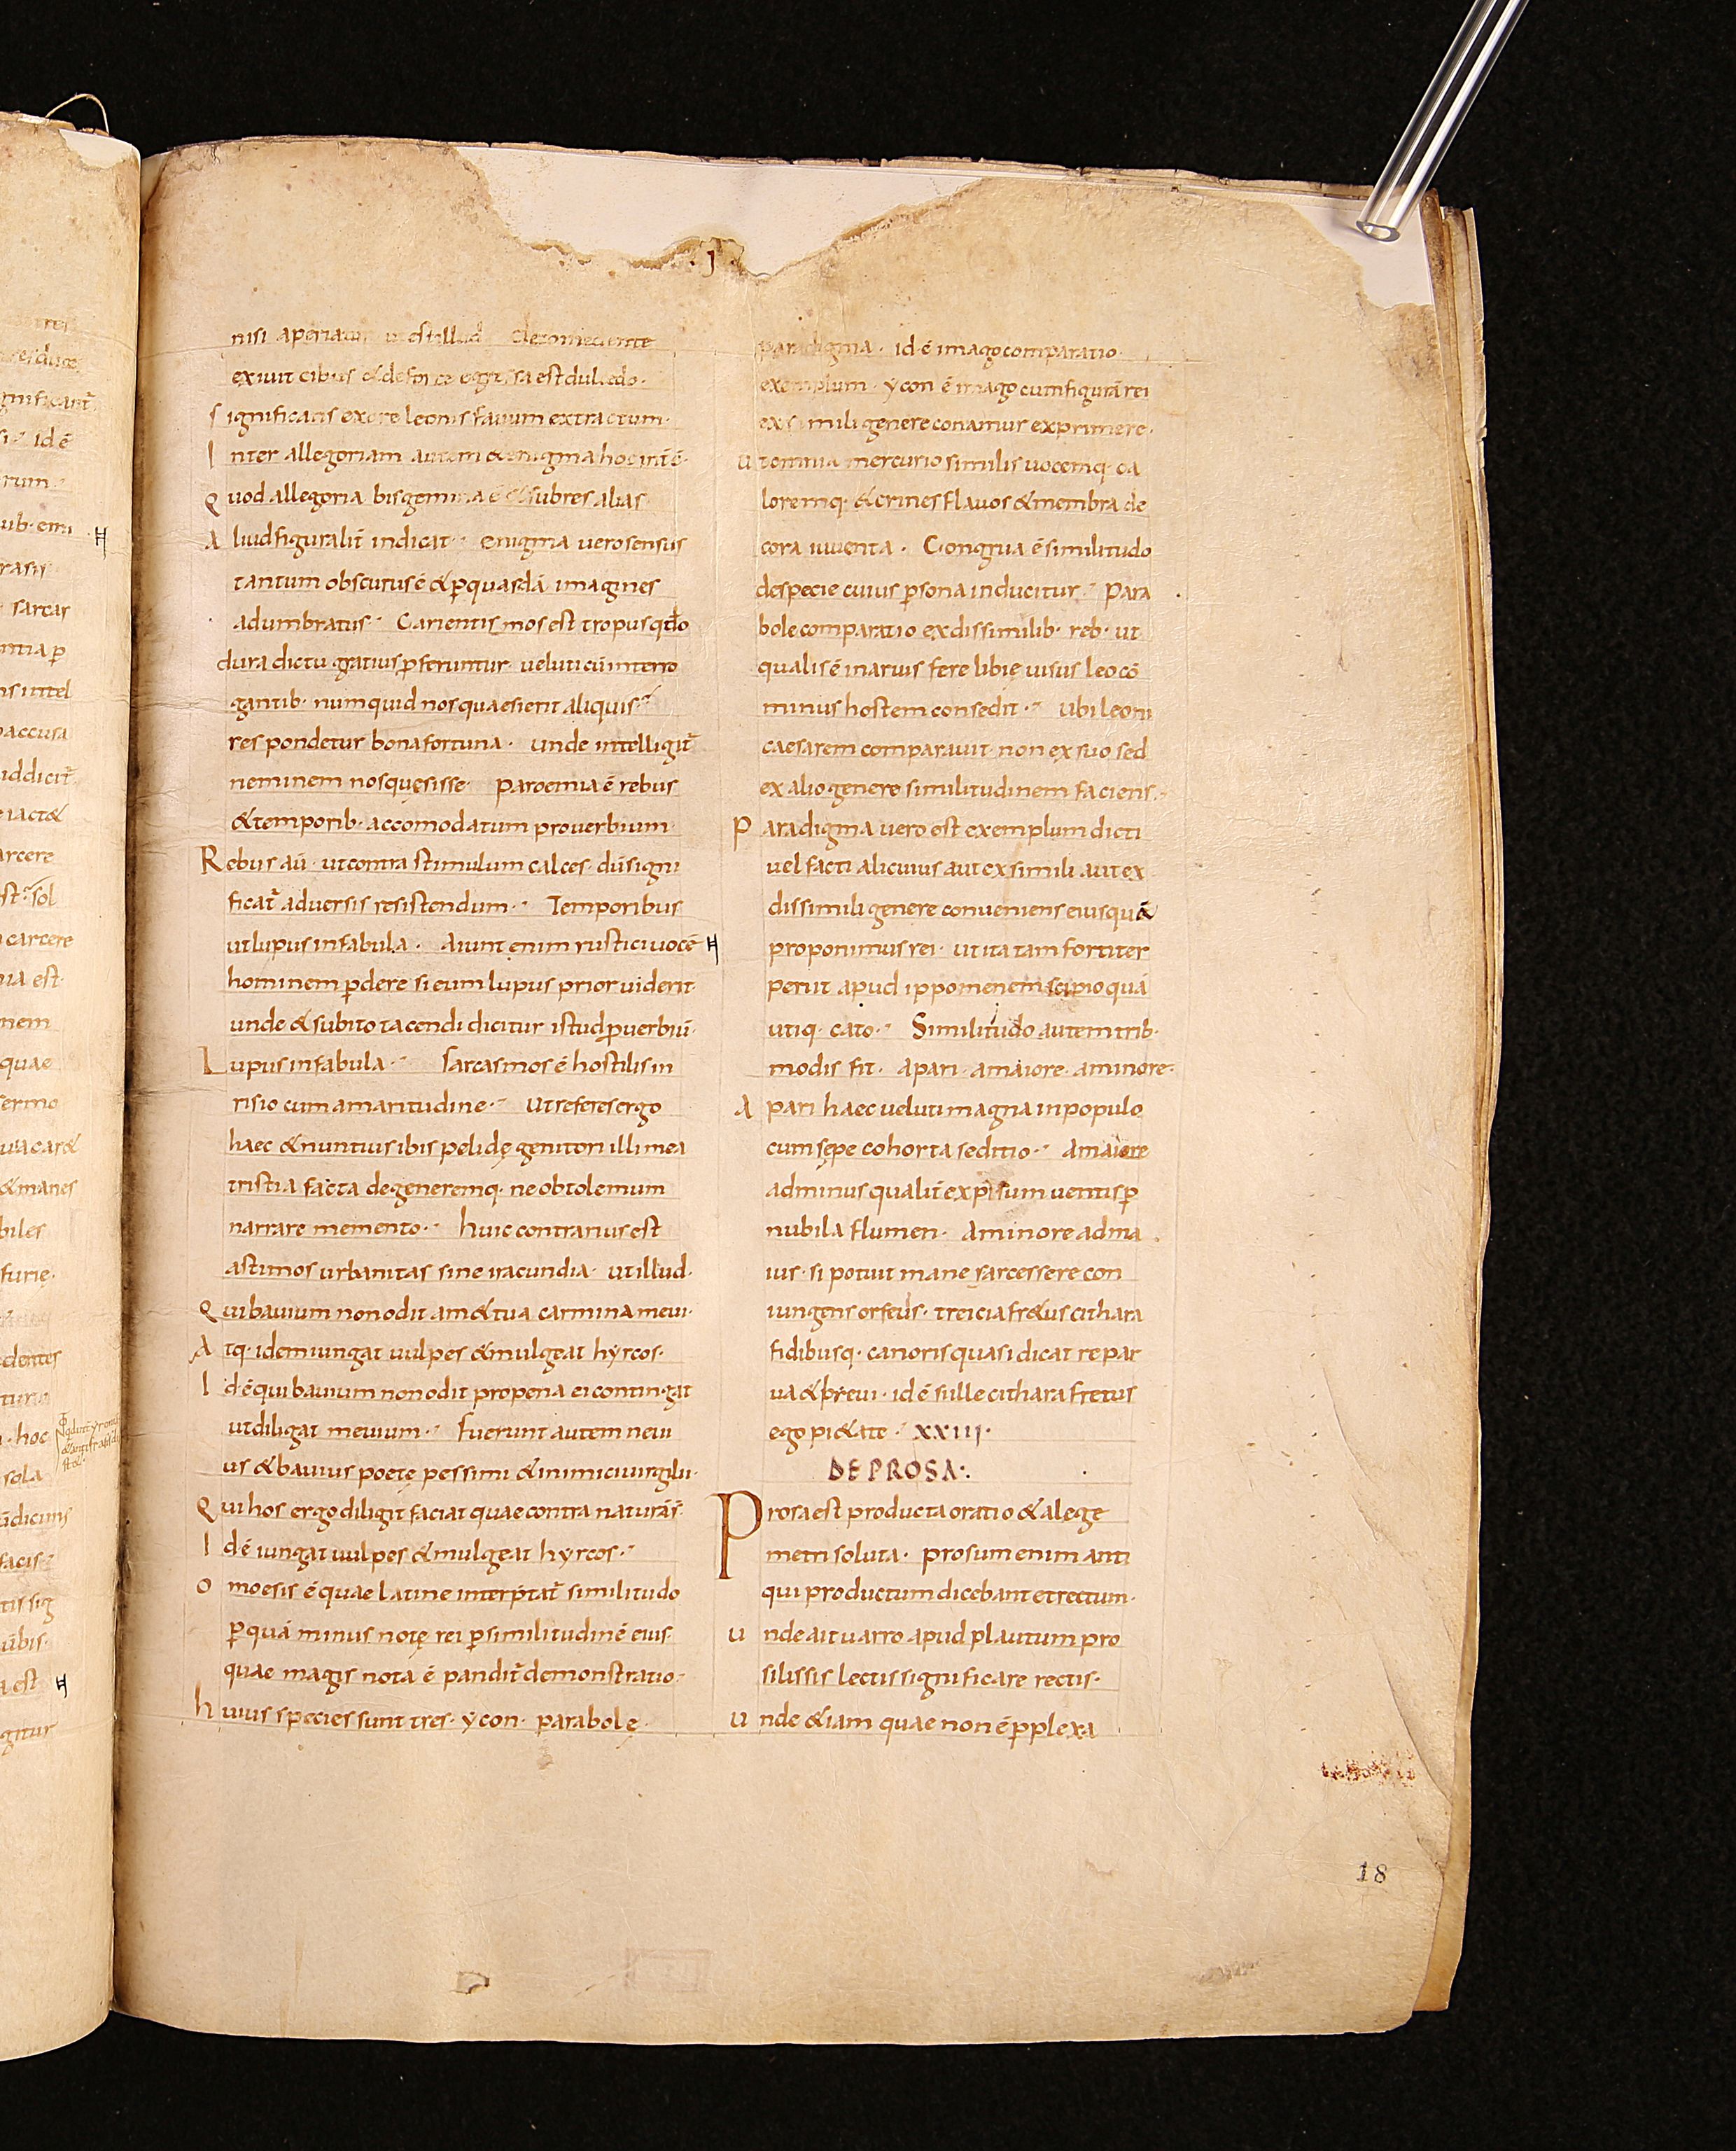 · I ·
nisi aperiatur ut est illud de comedente
exiuit cibus & de forte egressa est dulcedo·
Significans ex ore leonis fauum extractum·
Inter allegoriam autem & enigma hoc int̄ ē·
Quod allegoria bis gemina ē & sub res alias
Aliud figuralit̄ indicat· enigma uero sensus
tantum obscurus ē & ꝑ quasdā imagines
adumbratus· Carientismos est tropus q̄do
dura dictu gratius ꝓferuntur· ueluti cū interro
gantib· numquid nos quaesierit aliquis·
respondetur bona fortuna· unde intelligit̄
neminem nos quęsisse· Paroemia ē rebus
& temporib· accomodatum prouerbium·
Rebus aū· ut contra stimulum calces· dū signi
ficat̄ aduersis resistendum· Temporibus
ut lupus in fabula· Aiunt enim rustici uocē
hominem ꝑdere si eum lupus prior uiderit·
unde & subito tacendi dicitur istud ꝓuerbiū·
Lupus in fabula· Sarcasmos ē hostilis in
risio cum amaritudine· Ut referes ergo
haec & nuntius ibis pelidę genitori illi mea
tristia facta degeneremq· neobtolemum
narrare memento· huic contrarius est
astimos urbanitas sine iracundia· ut illud·
Qui bauium non odit am& tua carmina meui·
Atq· idem iungat uulpes & mulgeat hyrcos·
Id ē qui bauium non odit pro pena ei contingat
ut diligat meuium· Fuerunt autem neui
us & bauius poetę pessimi & inimici uirgilii·
Qui hos ergo diligit faciat quae contra naturā s̄·
Id ē iungat uulpes & mulgeat hyrcos·
Omoesis ē quae latine interp̄tat̄ similitudo
ꝑ quā minus notę rei ꝑ similitudinē eius·
quae magis nota ē pandit̄ demonstratio·
huius species sunt tres· ycon· parabolę·
paradigma· id ē imago comparatio·
exemplum· ycon ē imago cum figurā rei
ex simili genere conamur exprimere·
Ut omnia mercurio similis uocemq· ca
loremq· & crines flauos & membra de
cora iuuenta· Congrua ē similitudo
de specie cuius ꝑsona inducitur· Para
bole comparatio ex dissimilib· reb· ut
qualis ē in aruis fere libię uisus leo cō
minus hostem consedit· Ubi leoni
caesarem comparauit· non ex suo sed
ex alio genere similitudinem faciens·
Paradigma uero est exemplum dicti
uel facti alicuius aut ex simili aut ex
dissimili genere conueniens eius quā
proponimus rei· ut ita tam fortiter
periit apud ippomenem scipio quā
utiq· cato· Similitudo autem trib·
modis fit· apari· amaiore· aminore·
Apari haec ueluti magna in populo
cum sępe cohorta seditio· Amaiore
ad minus qualit̄ expısum uentis ꝑ
nubila flumen· Aminore ad ma
ius· si potuit mane sarcessere con
iungens orfeus· treicia fr&us cithara
fidibusq· canoris quasi dicat re par
ua & breui· id ē si ille cithara fretus
ego pi&ate· XXIII·
DE PROSA·
Prosa est producta oratio & a lege
metri soluta· prosum enim anti
qui productum dicebant et rectum·
Unde ait uarro apud plautum pro
silissis lectis significare rectis·
Unde &iam quae non ē ꝑplexa
18